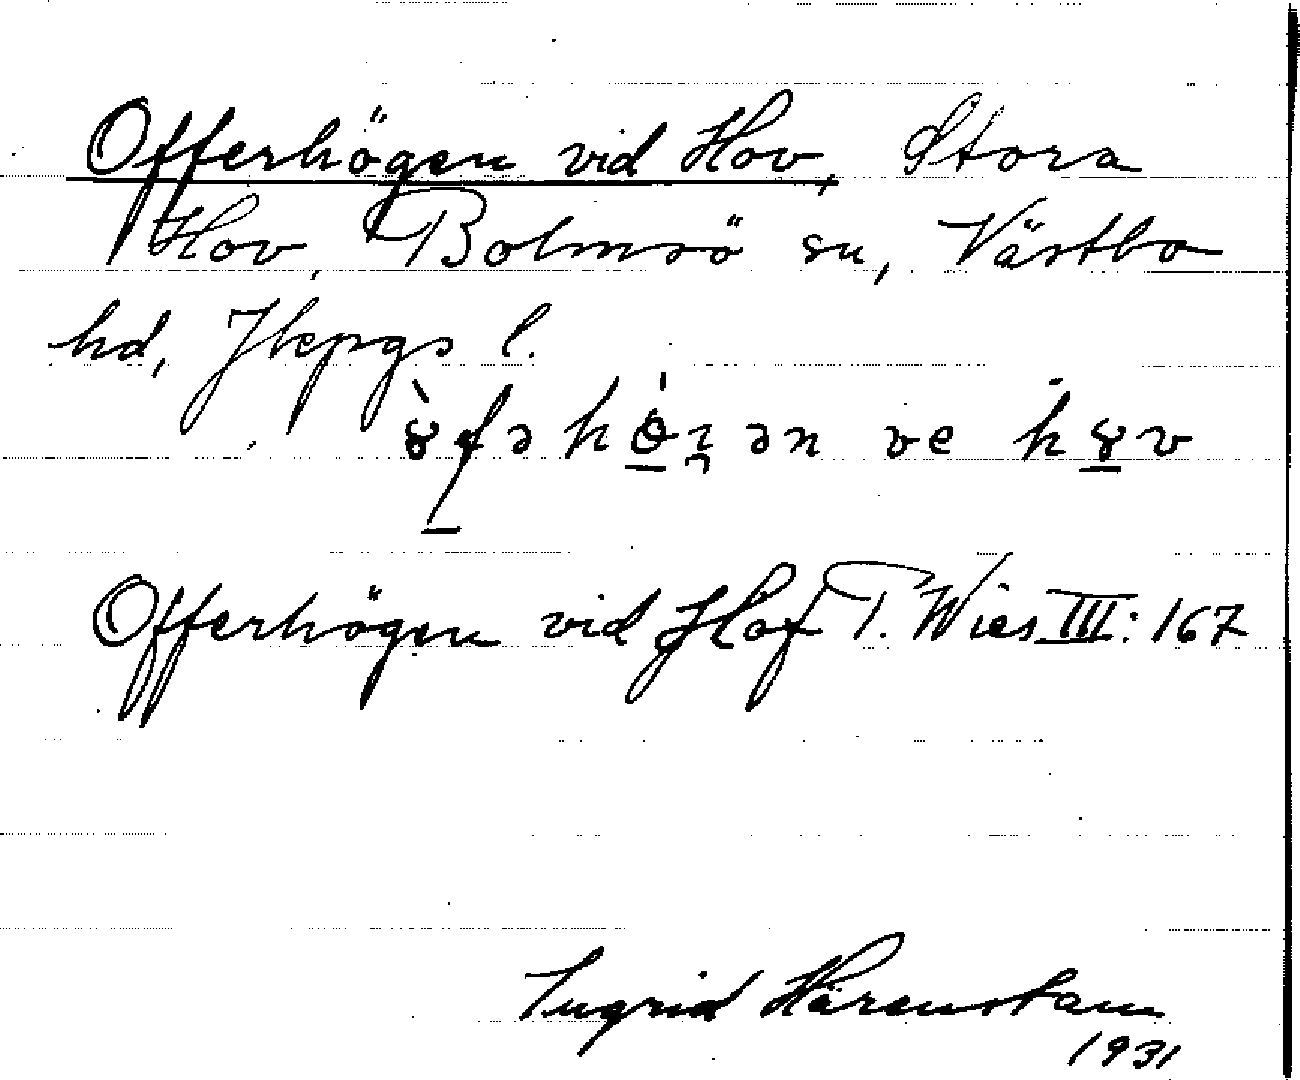 Offerhögen vid Hov, Stora
Hov, Bolmsö sn, Västbo
hd, Jkpgs l.
Offerhögen vid Hof T. Wies III: 167
Ingrid Härenstam
1931